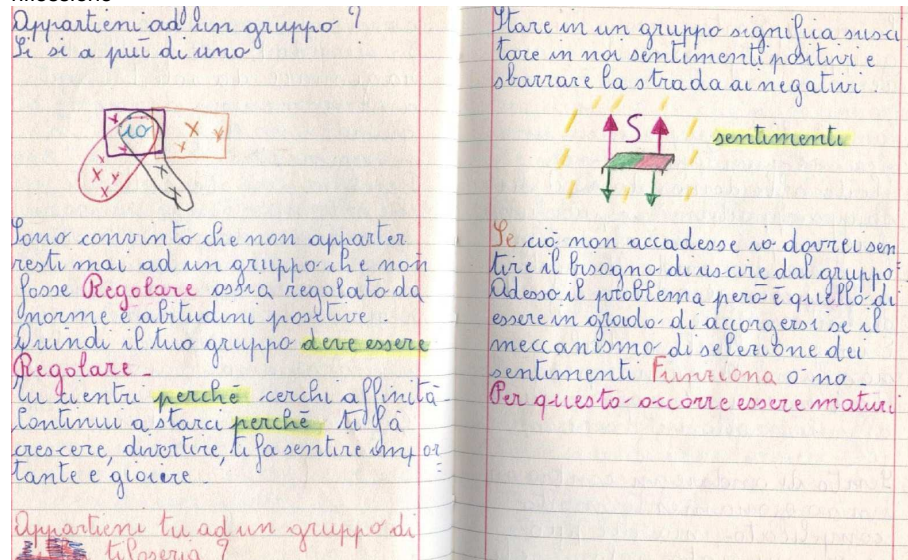 Appartieni ad un gruppo?
Si si a più di uno
io
Sono convinto che non apparter
resti mai ad un gruppo che non
fosse Regolare ossia regolato da
norme e abitudini positive.
Quindi il tuo gruppo deve essere
Regolare.
Tu ci entri perché cerchi affinità.
Continui a starci perché ti fà
crescere, divertire, ti fa sentire impor
tante e gioire.
Appartieni tu ad un gruppo di
Stare in un gruppo significa susci
tare in noi sentimenti positivi e
sbarrare la strada ai negativi.
S
sentimenti
Se ciò non accadesse io dovrei sen
tire il bisogno di uscire dal gruppo.
Adesso il problema però è quello di
essere in grado di accorgersi se il
meccanismo di selezione dei
sentimenti Funziona o no.
Per questo occorre essere maturi